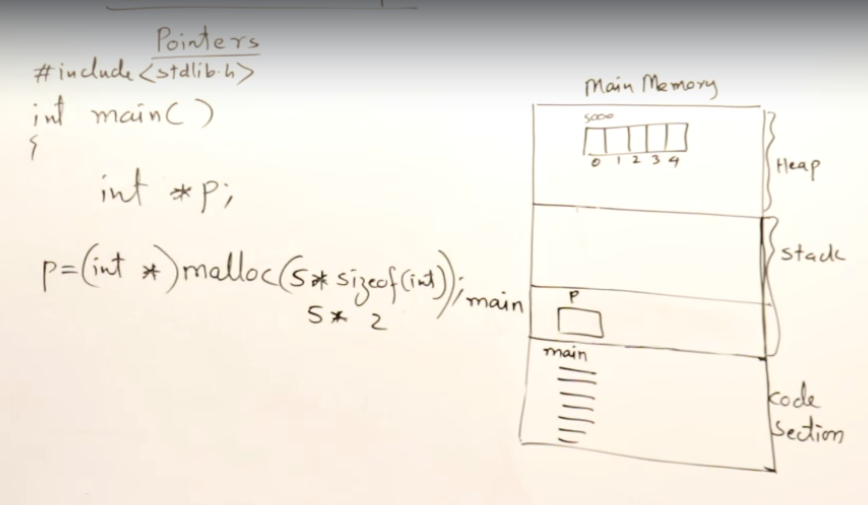 Pointers
#include<stdlib.h>
int main()
{
int *p;
p=(int *)malloc(5*sizeof(int));
5* 2
Main Memory
5000
0 1 2 3 4
Heap
stack
main
P
main
code
section